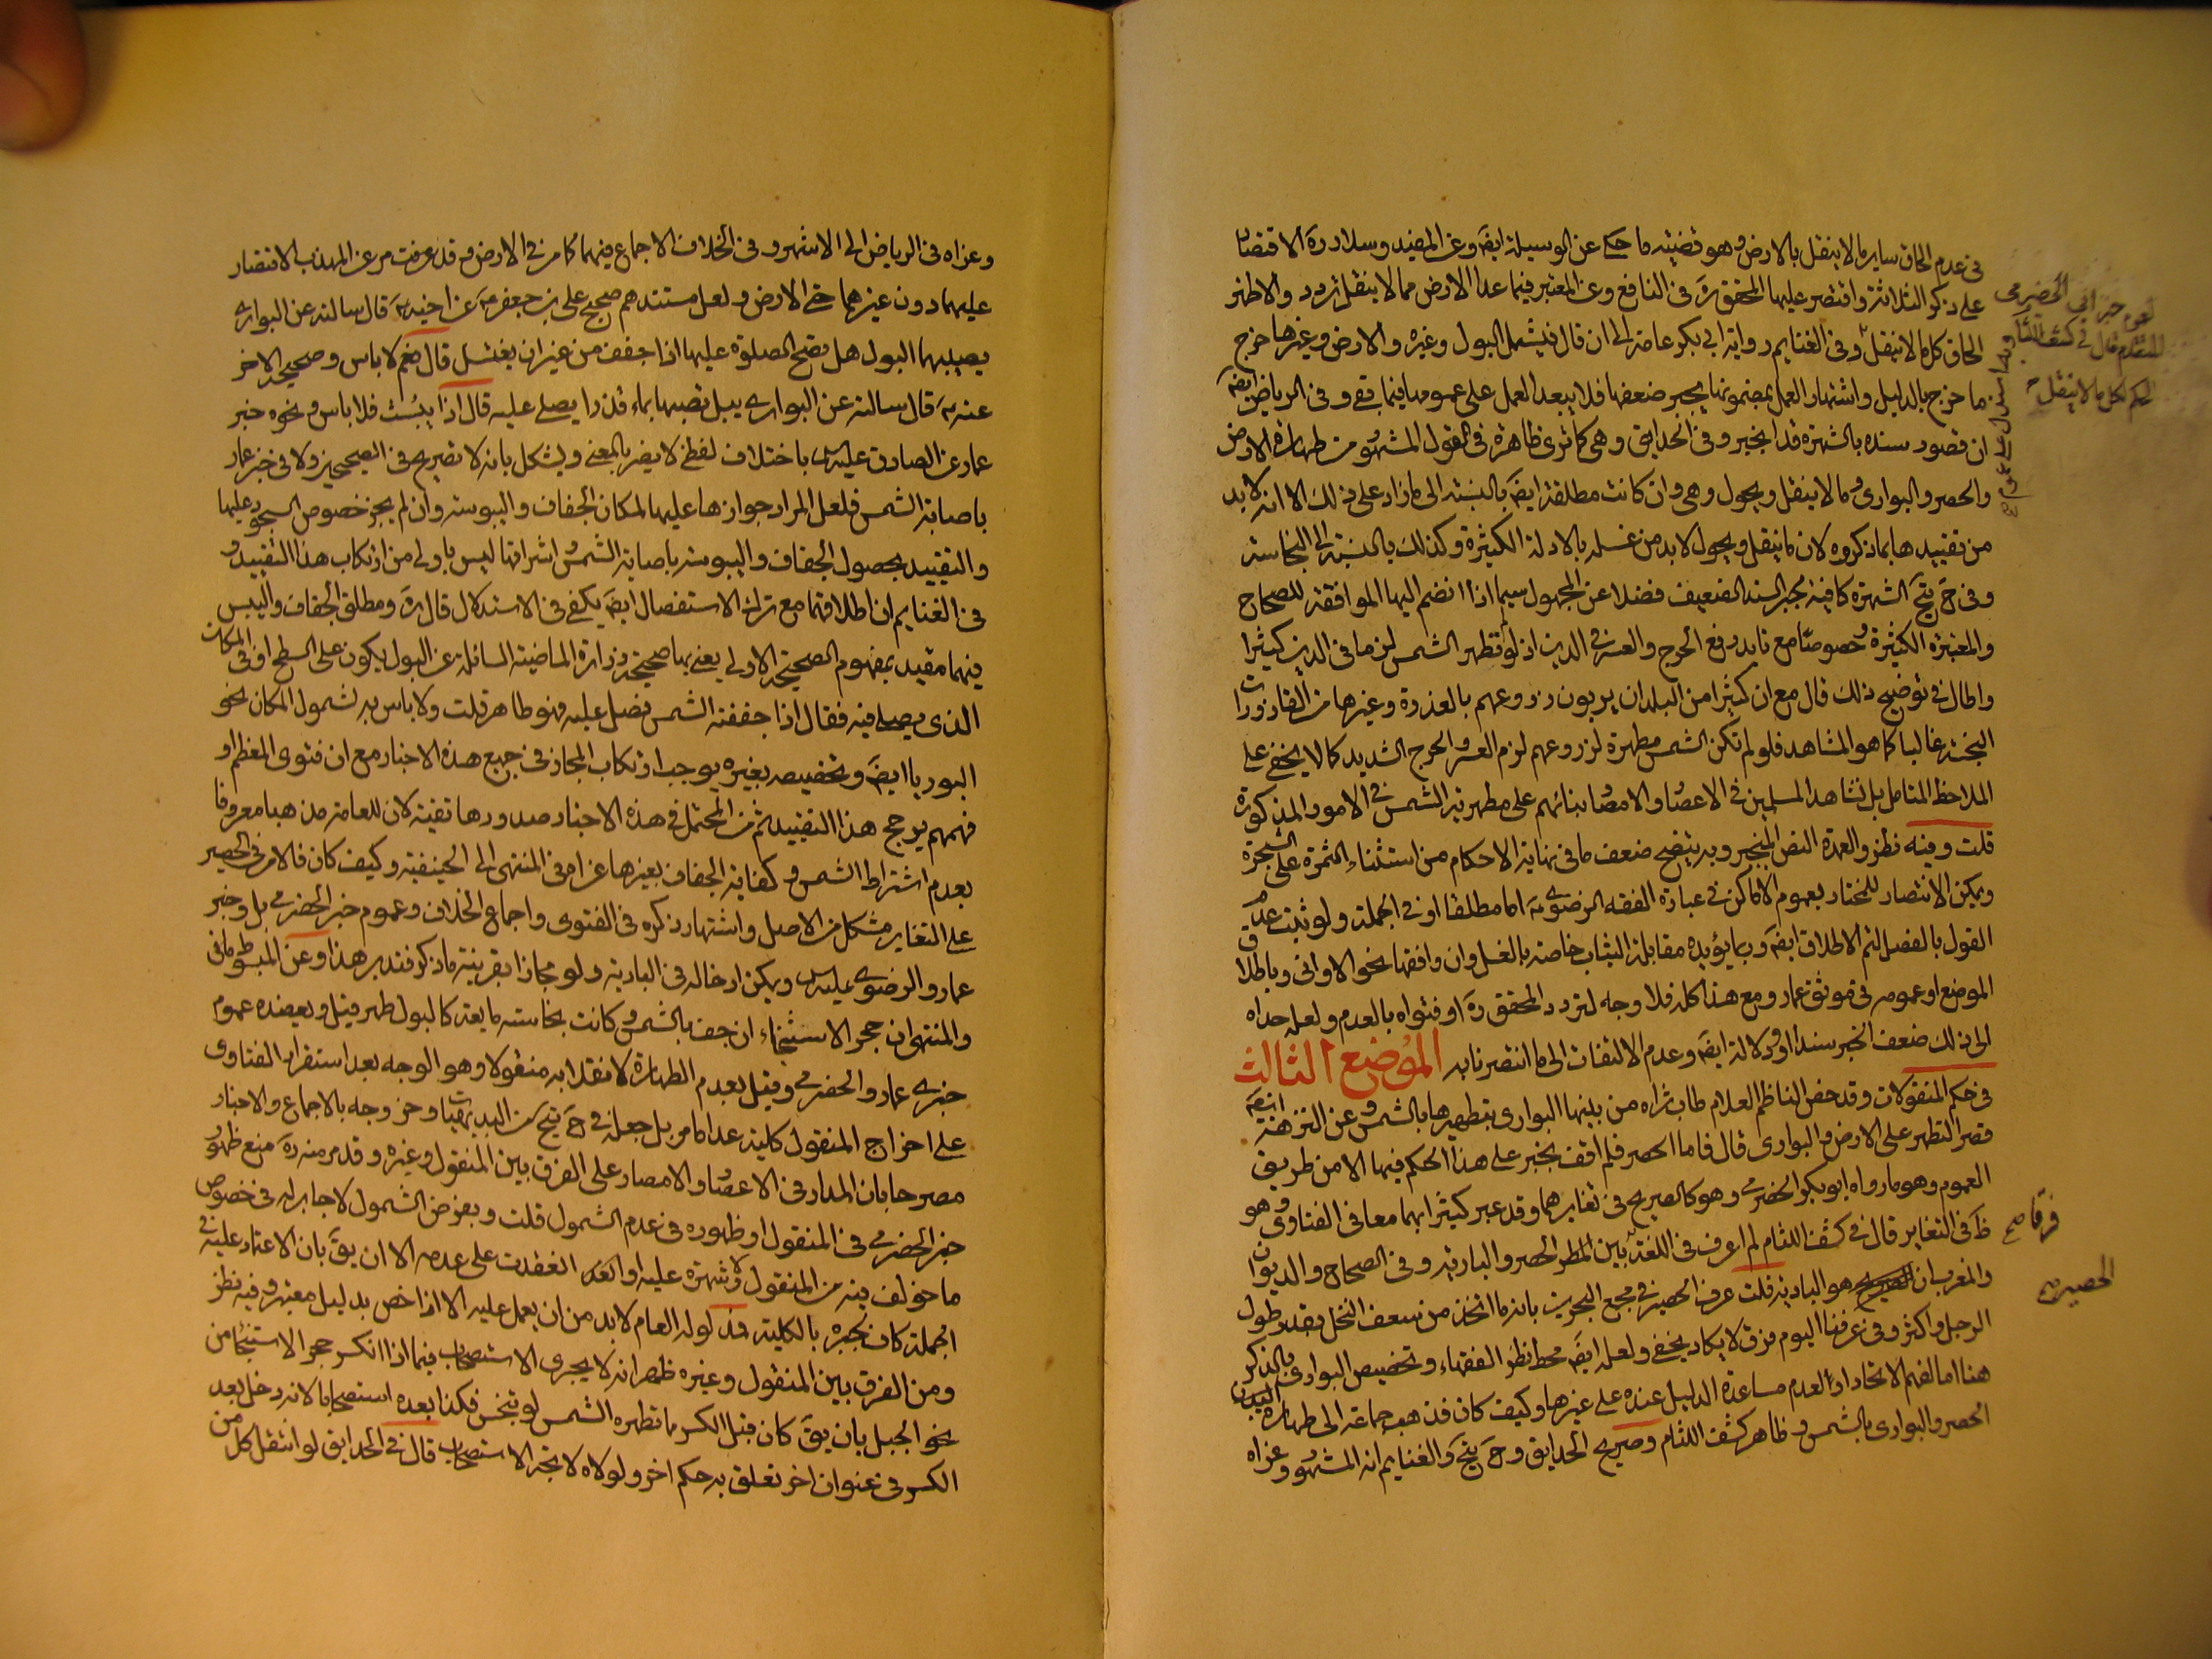 في عدم الحاق سايره ما لا ينقل بالارض وهو قضيته ما حكى عن الوسيلة ايضَ وعن المفيد وسلار ره الاقتصار
على ذكر الثلاثة واقتصر عليها المحقق رهَ في النافع وعن المعتبر فيما عدا الارض مما لا ينقل تردد والاظهر
الحاق كل ما لا ينقل وفي الغنايم رواية ابي بكر عامة الى ان قال فيشمل البول وغيره والارض وغيرها خرج
ما خرج بالدليل واشتهار العمل بمضمونها يجبر ضعفها فلا يبعد العمل على عمومها فيما بقى وفي الرياض ايضَ
ان قصور سنده بالشهرة قد انجبر وفي الحدايق وهي كما ترى ظاهرة في القول المشهور من طهارة الارض
والحصر والبوارى وما لا ينقل ويحول وهي وان كانت مطلقة ايضَ بالنسبة الى ما زاد على ذلك الا انه لا بد
من تقييدها بما ذكروه لان ما ينقل ويحول لا بد من غسله بالادلة الكثيرة وكذلك بالنسبة الى النجاسة
وفي حَ يَجَ الشهرة كافية بجبر السند الضعيف فضلا عن المجهول سيما اذا انضم اليها الموافقة للصحاح
والمعتبرة الكثيرة خصوصًا مع تايد رفع الحرج والعسر في الدين اذ لو لم تطهر الشمس لزم ما في الدين كثيرا
واطال في توضيح ذلك قال مع ان كثيرا من البلدان يربون زروعهم بالعذرة وغيرها من القاذورات
النجسة غالبا كما هو المشاهد فلو لم تكن الشمس مطهرة لزروعهم لزم العسر والحرج الشديد كما لا يخفى على
الملاحظ المتامل بل نشاهد المسلمين في الاعصار والامصار بنائهم على مطهرية الشمس في الامور المذكورة
قلت وفيه نظر والعمدة النص المنجبر وبه يتضح ضعف ما في نهاية الاحكام من استثناء الثمرة على الشجرة
ويمكن الانتصار للمختار بعموم الاماكن في عبارة الفقه الرضوي ع اما مطلقا او في الجملة ولو ثبت عدم
القول بالفصل لتم الاطلاق ايضَ وربما يؤيده مقابلة الثياب خاصة بالغسل وان وافقها نحو الاواني وباطلاق
الموضع او عمومه في موثق عمار ومع هذا كله فلا وجه لتردد المحقق رهَ او فتواه بالعدم ولعله حداه
الى ذلك ضعف الخبر سندا او دلالة ايضَ وعدم الالتفات الى ما انتصرنا به الموضع الثالث
في حكم المنقولات وقد خص الناظم العلام طاب ثراه من بينها البوارى بتطهيرها بالشمس وعن النزهة ايضَ
قصر التطهر على الارض والبوارى قال فاما الحصر فلم اقف بخبر على هذا الحكم فيها الا من طريق
العموم وهو ما رواه ابو بكر الحضرمي وهو كالصريح في تغايرهما وقد عبر كثيرا بهما معا في الفتاوى وهو
ظَ في التغاير قال في كشف اللثام لم اعرف في اللغة بين المطر الحصر والبارية وفي الصحاح والديوان
والمغرب ان هو البارية قلت عرف الحصير في مجمع البحرين بانه ما اتخذ من سعف النخل بقدر طول
الرجل واكثر وفي عرفنا اليوم فرق لا يكاد يخفى ولعله ايضَ محط نظر الفقهاء وتخصيص البوارى بالذكر
هنا اما لفهم الاتحاد او لعدم مساعدة الدليل عنده على غيرها وكيف كان فذهب جماعة الى طهارة
الحصر والبوارى بالشمس وظاهر كشف اللثام وصريح الحدايق وحَ يَجَ والغنايم انه المشهور وعزاه
نعم خبر ابي الحضرمي
المتقدم قال في كشف اللثام
الحكم لكل ما لا ينقل
فرقا صح
الحصير صح
وعزاه في الرياض الى الاشهر وفي الخلاف الاجماع فيهما كما مر في الارض وقد عرفت مر عن المهذب الاقتصار
عليهما دون غيرهما حتى الارض ولعل مستندهم صحيح علي بن جعفر عَ عن اخيه عَ قال سالته عن البوارى
يصيبها البول هل يصح الصلوة عليها اذا جففت من غير ان يغتسل قال نعم لا باس وصحيحه الاخر
عنه عَ قال سالته عن البوارى يبل قصبها بماء قذر ايصلى عليه قال اذا يبست فلا باس ونحوه خبر
عمار عن الصادق عليه السلام باختلاف لفظي لا يضر بالمعنى ويشكل بانه لا تصريح في الصحيحين ولا في خبر عمار
باصابة الشمس فلعل المراد جوازها عليها لمكان الجفاف واليبوسة وان لم يجز خصوص السجود عليها
والتقييد بحصول الجفاف واليبوسة باصابة الشمس واشراقها ليس باولى من ارتكاب هذا التقييد و
في الغنايم ان اطلاقهما مع ترك الاستفصال ايضَ يكفي في الاستدلال قال رهَ ومطلق الجفاف واليبس
فيهما مقيد بمفهوم الصحيحة الاولى يعني بها صحيحة زرارة الماضية السائلة عن البول يكون على السطح او في المكان
الذي يصلى فيه فقال اذا جففته الشمس فصل عليه فهو طاهر قلت ولا باس به لشمول المكان نحو
البوريا ايضَ وتخصيصه بغيره يوجب ارتكاب المجاز في جميع هذه الاخبار مع ان فتوى المعظم او
فهمهم يرجح هذا التقييد ثم من المحتمل في هذه الاخبار صدورها تقية لان للعامة مذهبا معروفا
بعدم اشتراط الشمس وكفاية الجفاف بغيرها عزاه في المنتهى الى الحنيفية وكيف كان فالامر في الحصير
على التغاير مشكل من الاصل واشتهار ذكره في الفتوى واجماع الخلاف وعموم خبر الحضرمي بل وخبر
عمار والرضوي عليه السلام ويمكن ادخاله في البارية ولو مجازا بقرينة ما ذكر فتدبر هذا وعن المبسوط وفي
والمنتهى ان حجر الاستنجاء ان جف بالشمس وكانت نجاسته مايعة كالبول طهر قيل ويعضده عموم
خبرى عمار والحضرمي وقيل بعدم الطهارة لانقلابه منقولا وهو الوجه بعد استقرار الفتاوى
على اخراج المنقول كلية عدا ما مر بل جعله في حَ يَجَ من البديهيات وخروجه بالاجماع والاخبار
مصرحا بان المدار في الاعصار والامصار على الفرق بين المنقول وغيره وقد مر منه رهَ منع ظهور
خبر الحضرمي في المنقول او ظهوره في عدم الشمول قلت وبفرض الشمول لا جابر له في خصوص
ما خولف فيه من المنقول ولا شهرة عليه او انعقدت على عدمه الا ان يقَ بان الاعتماد عليه في
الجملة كاف لجبره بالكلية فمدلوله العام لا بد من ان يعمل عليه الا اذا خص بدليل معتبر وفيه نظر
ومن الفرق بين المنقول وغيره ظهر انه لا يجرى الاستصحاب فيما اذا انكسر حجر الاستنجاء من
نحو الجبل بان يقَ كان قبل الكسر ما تطهره الشمس لو تنجس فكذا بعده استصحابا لانه دخل بعد
الكسر في عنوان اخر تعلق به حكم اخر ولولاه لاتجه الاستصحاب قال في الحدايق لو انتقل كل من